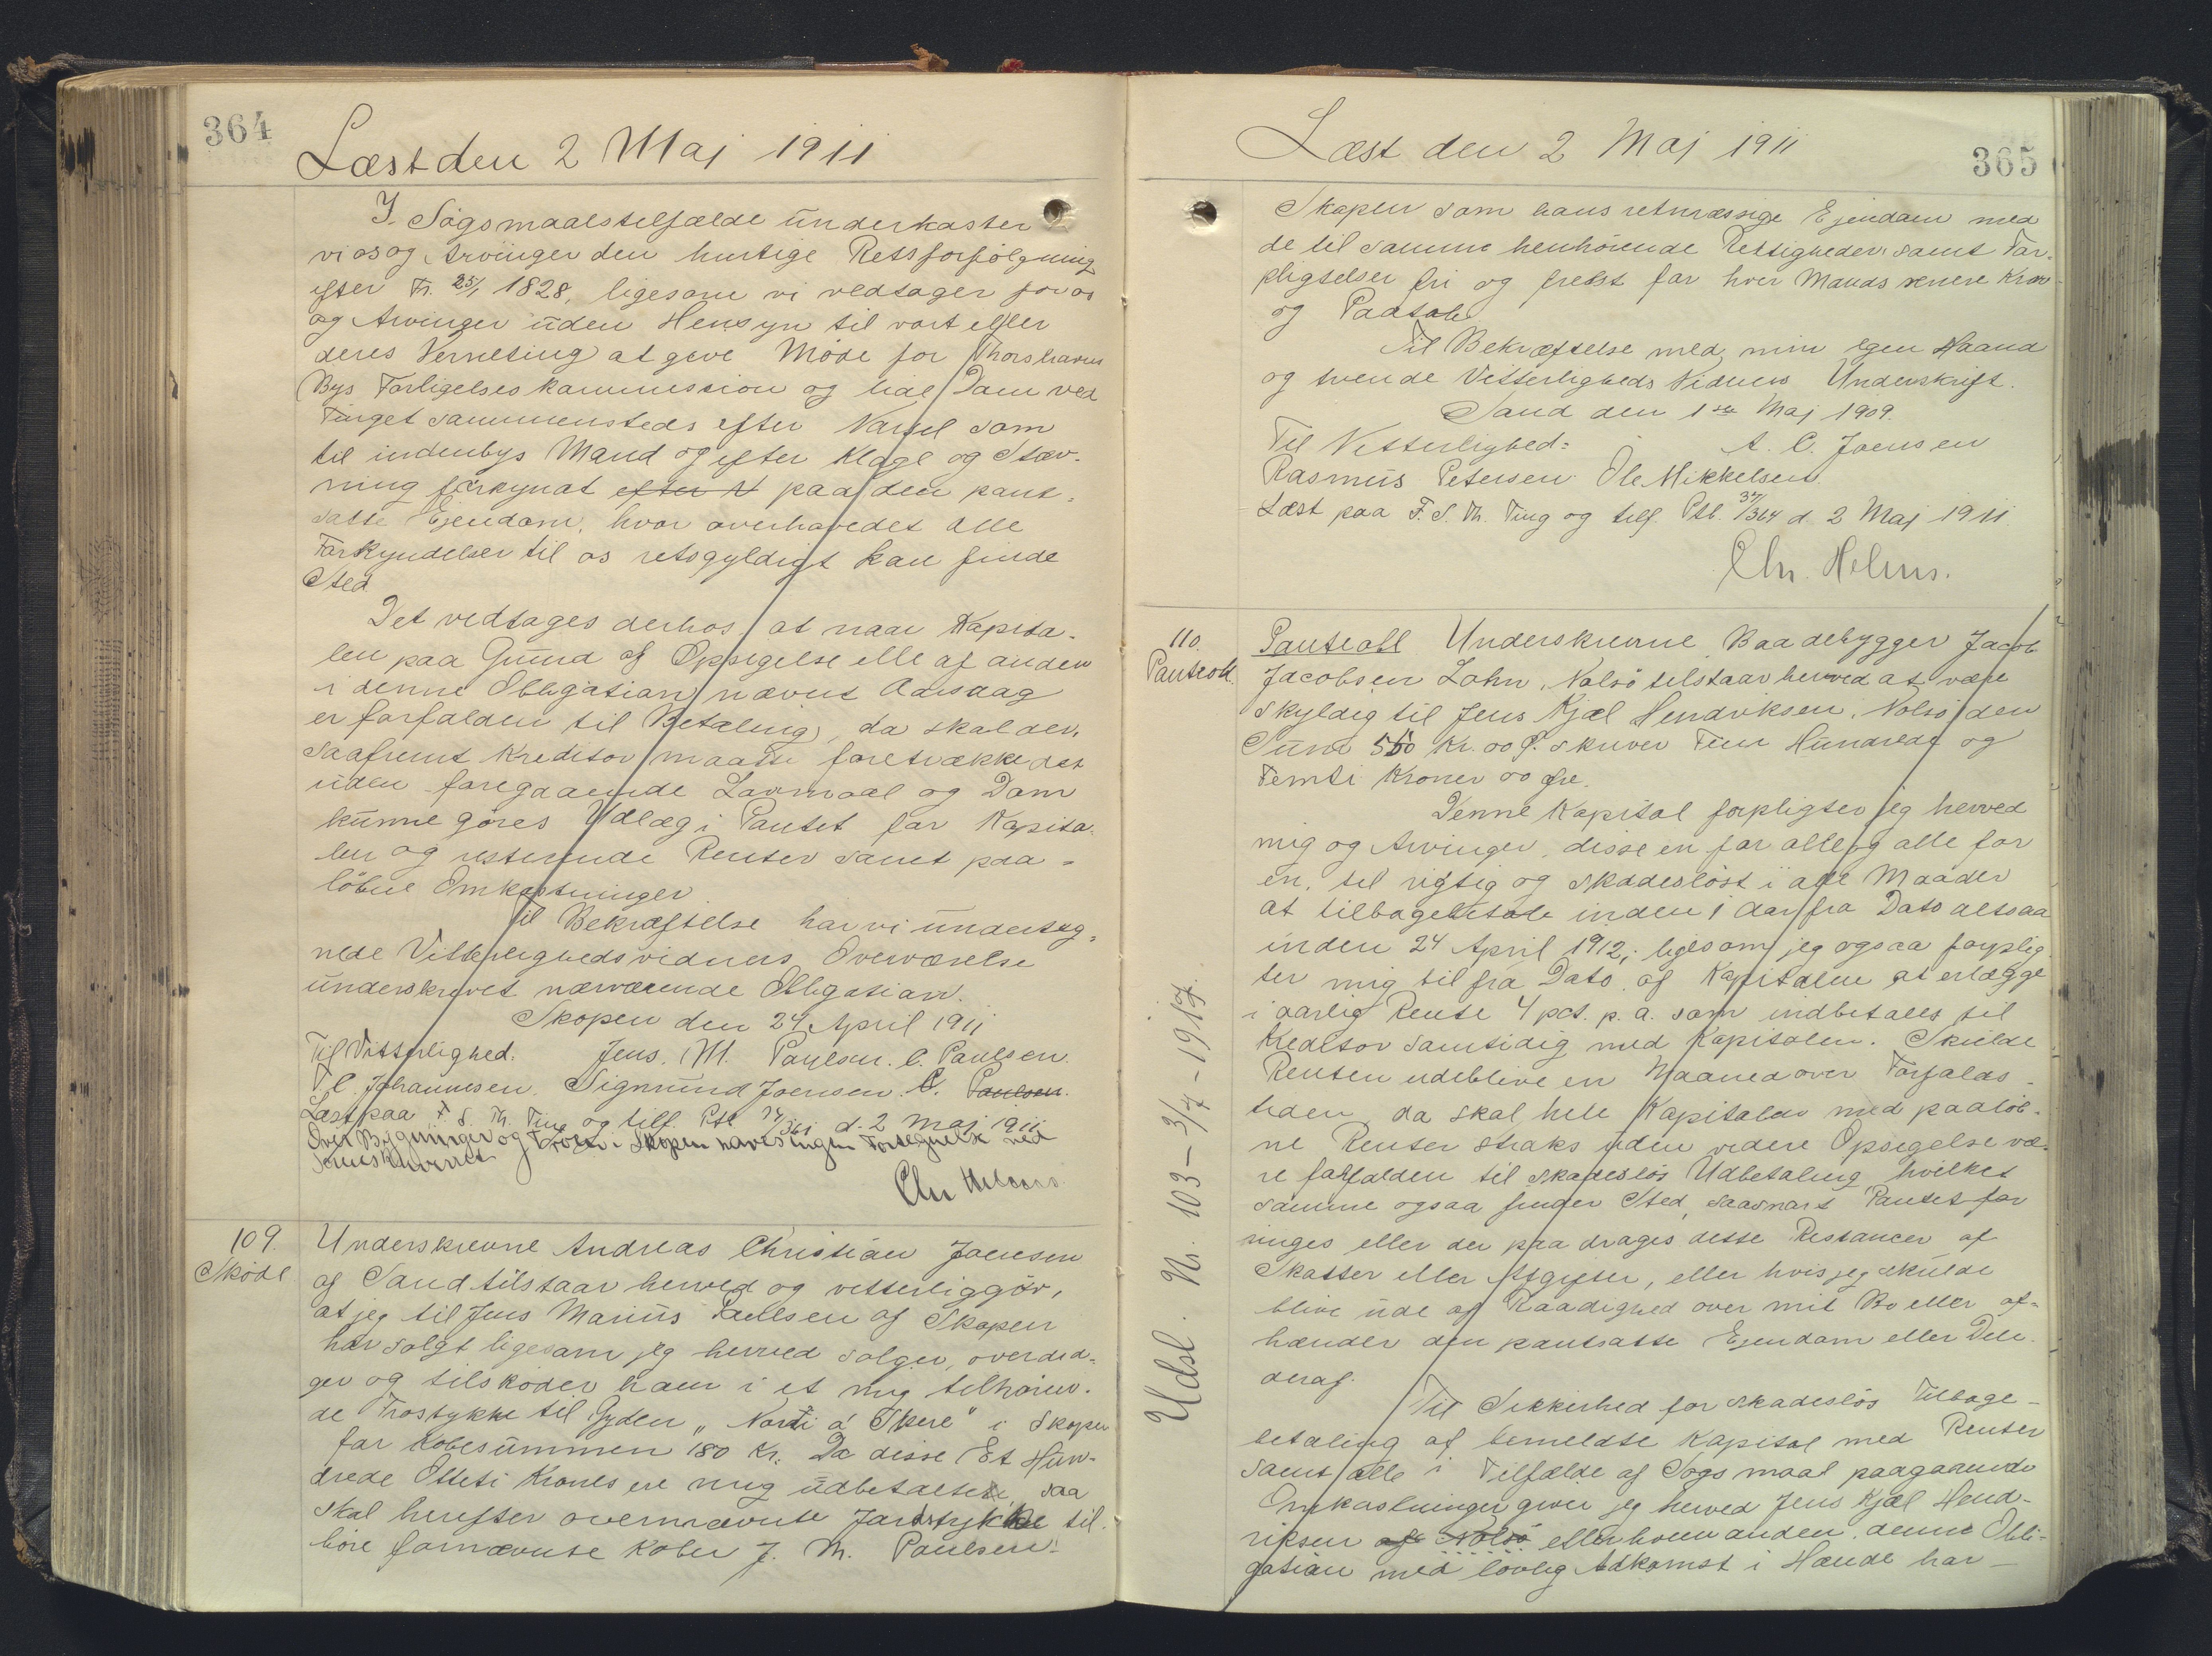 364
Læst den 2 Maj 1911
I Søgsmaalstilfælde underkaster
vi os og Arvinger den hurtige Retsforfølgning
efter Fr. 25/1 1828, ligesom vi vedtager for os
og Arvinger uden Hensyn til vort eller
deres Verneting at give Møde for Thorshavns
Bys Forligelseskommission og lide Dom ved
Tinget sammensteds efter Varsel som
til indenbys Mand og efter Klage og Stæv-
ning forkyndt efter V paa den pant-
satte Ejendom, hvor overhovedet alle
Forkyndelser til os retsgyldigt kan finde
Sted
Det vedtages derhos, at naar Kapita-
len paa Grund af Opsigelse elle af anden
i denne Obligation nævnt Aarsag
er forfalden til Betaling, da skal der,
saafremt Kreditor maatte foretrække det
uden foregaaende Lovmaal og Dom
kunne gøres Udlæg i Pantet for Kapita-
len og resterende Renter samt paa-
løbne Omkostninger
Til Bekræftelse har vi underteg-
nede Vitterlighedsvidners Overværelse
underskrevet nærværende Obligation.
Skopen den 24 April 1911
Til Vitterlighed: Jens. M. Paulsen. C. Paulsen.
T. C. Johannesen. Sigmund Joensen. C. Paulsen.
Læst paa F. S. Th. Ting og tilf. Ptb 37/361 d. 2 Maj 1911
Over Bygninger og Troen i Skopen haves ingen Fortegnelse ved
Sorenskriveriet
Chr Helms.
109.
Skøde
Underskrevne Andreas Christian Joensen
af Sand tilstaar herved og vitterliggør,
at jeg til Jens Marius Paulsen af Skopen
har solgt ligesom jeg herved sølger, overdrd-
ger og tilskøder ham i et mig tilhøren-
de Trøstykke til Gyden "Norti á Skere" i Skopen
for Købesummen 180 Kr. Da disse Et Hun-
drede Otteti Kroner ere mig udbetaltete, saa
skal herefter overnævnte Jordstykke til-
høre fornævnte Køber J. M. Paulsen.
Læst den 2 Maj 1911
365
Skopen som hans retmæssige Ejendom med
de til samme henhørende Rettigheder samt For-
pligtelser fri og frelst for hver Mands senere Krav
og Paatale
Til Bekræftelse med min egen Haand
og tvende Vitterligheds Vidners Underskrift.
Sand den 1ste Maj 1909.
Til Vitterlighed: A. C. Joensen
Rasmus Petersen Ole Mikkelsen
Læst paa F. S. Th. Ting og tilf. Ptb. 37/364 d. 2 Maj 1911
Chr. Helms.
110.
Panteobl.
Panteobl Underskrevne Baadebygger Jacob
Jacobsen Lohn, Nolsø tilstaar herved at være
skyldig til Jens Kjæl Hendriksen, Nolsø den
Sum 550 Kr. 00 Ø. skriver Fem Hundrede og
Femti Kroner 00 Øre.
Denne Kapital forpligter jeg herved
mig og Arvinger, disse en for alle og alle for
en, til rigtig og skadesløst i alle Maader
at tilbagebetale inden 1 Aar fra Dato altsaa
inden 24 April 1912,; ligesom jeg ogsaa forplig-
ter mig til fra Dato af Kapitalen at erlægge
i aarlig Rente 4 pct. p. a. som indbetales til
Kreditor samtidig med Kapitalen. Skulde
Renten udeblive en Maaned over Forfalds-
tiden, da skal hele Kapitalen med paaløb-
ne Renter straks uden videre Opsigelse væ-
re forfalden til skadesløs Udbetaling, hvilket
samme ogsaa finder Sted, saasnart Pantet for
ringes eller der paa drages dette Restancer af
Skatter eller Afgifter, eller hvis jeg skulde
blive ude af Raadighed over mit Bo eller af-
hænder den pantsatte Ejendom eller Dele
deraf.
Til Sikkerhed for skadesløs Tilbage-
betaling af bemeldte Kapital med Renter
samt alle i Tilfælde af Søgsmaal paagaaende
Omkostninger giver jeg herved Jens Kjæl Hend-
riksen af Nolsø eller hvem anden, denne Obli-
gation med lovlig Adkomst i Hænde har
Udsl. Nr. 103 - 3/7 - 1917.